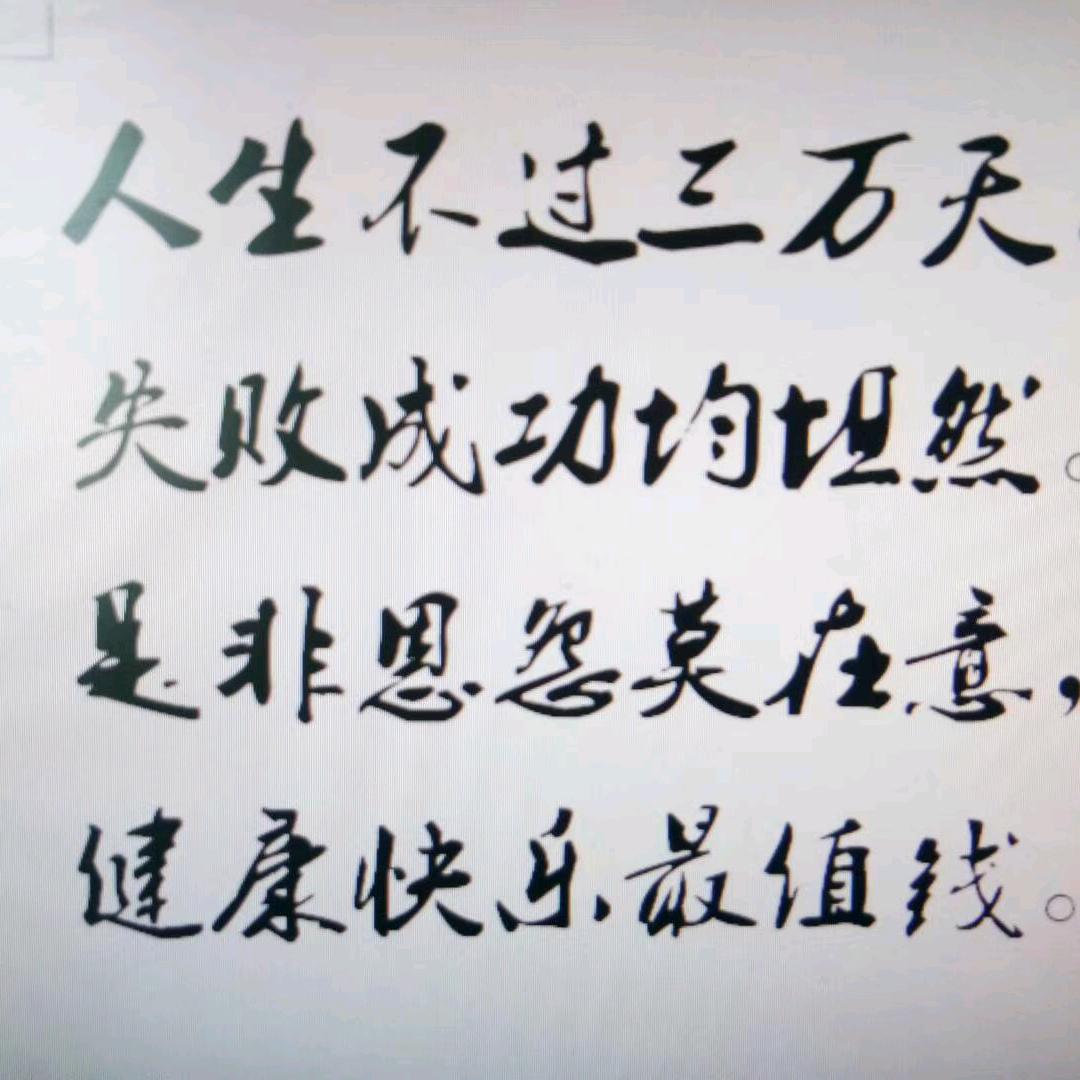 人生不过三万天，
失败成功均坦然。
是非恩怨莫在意，
健康快乐最值钱。